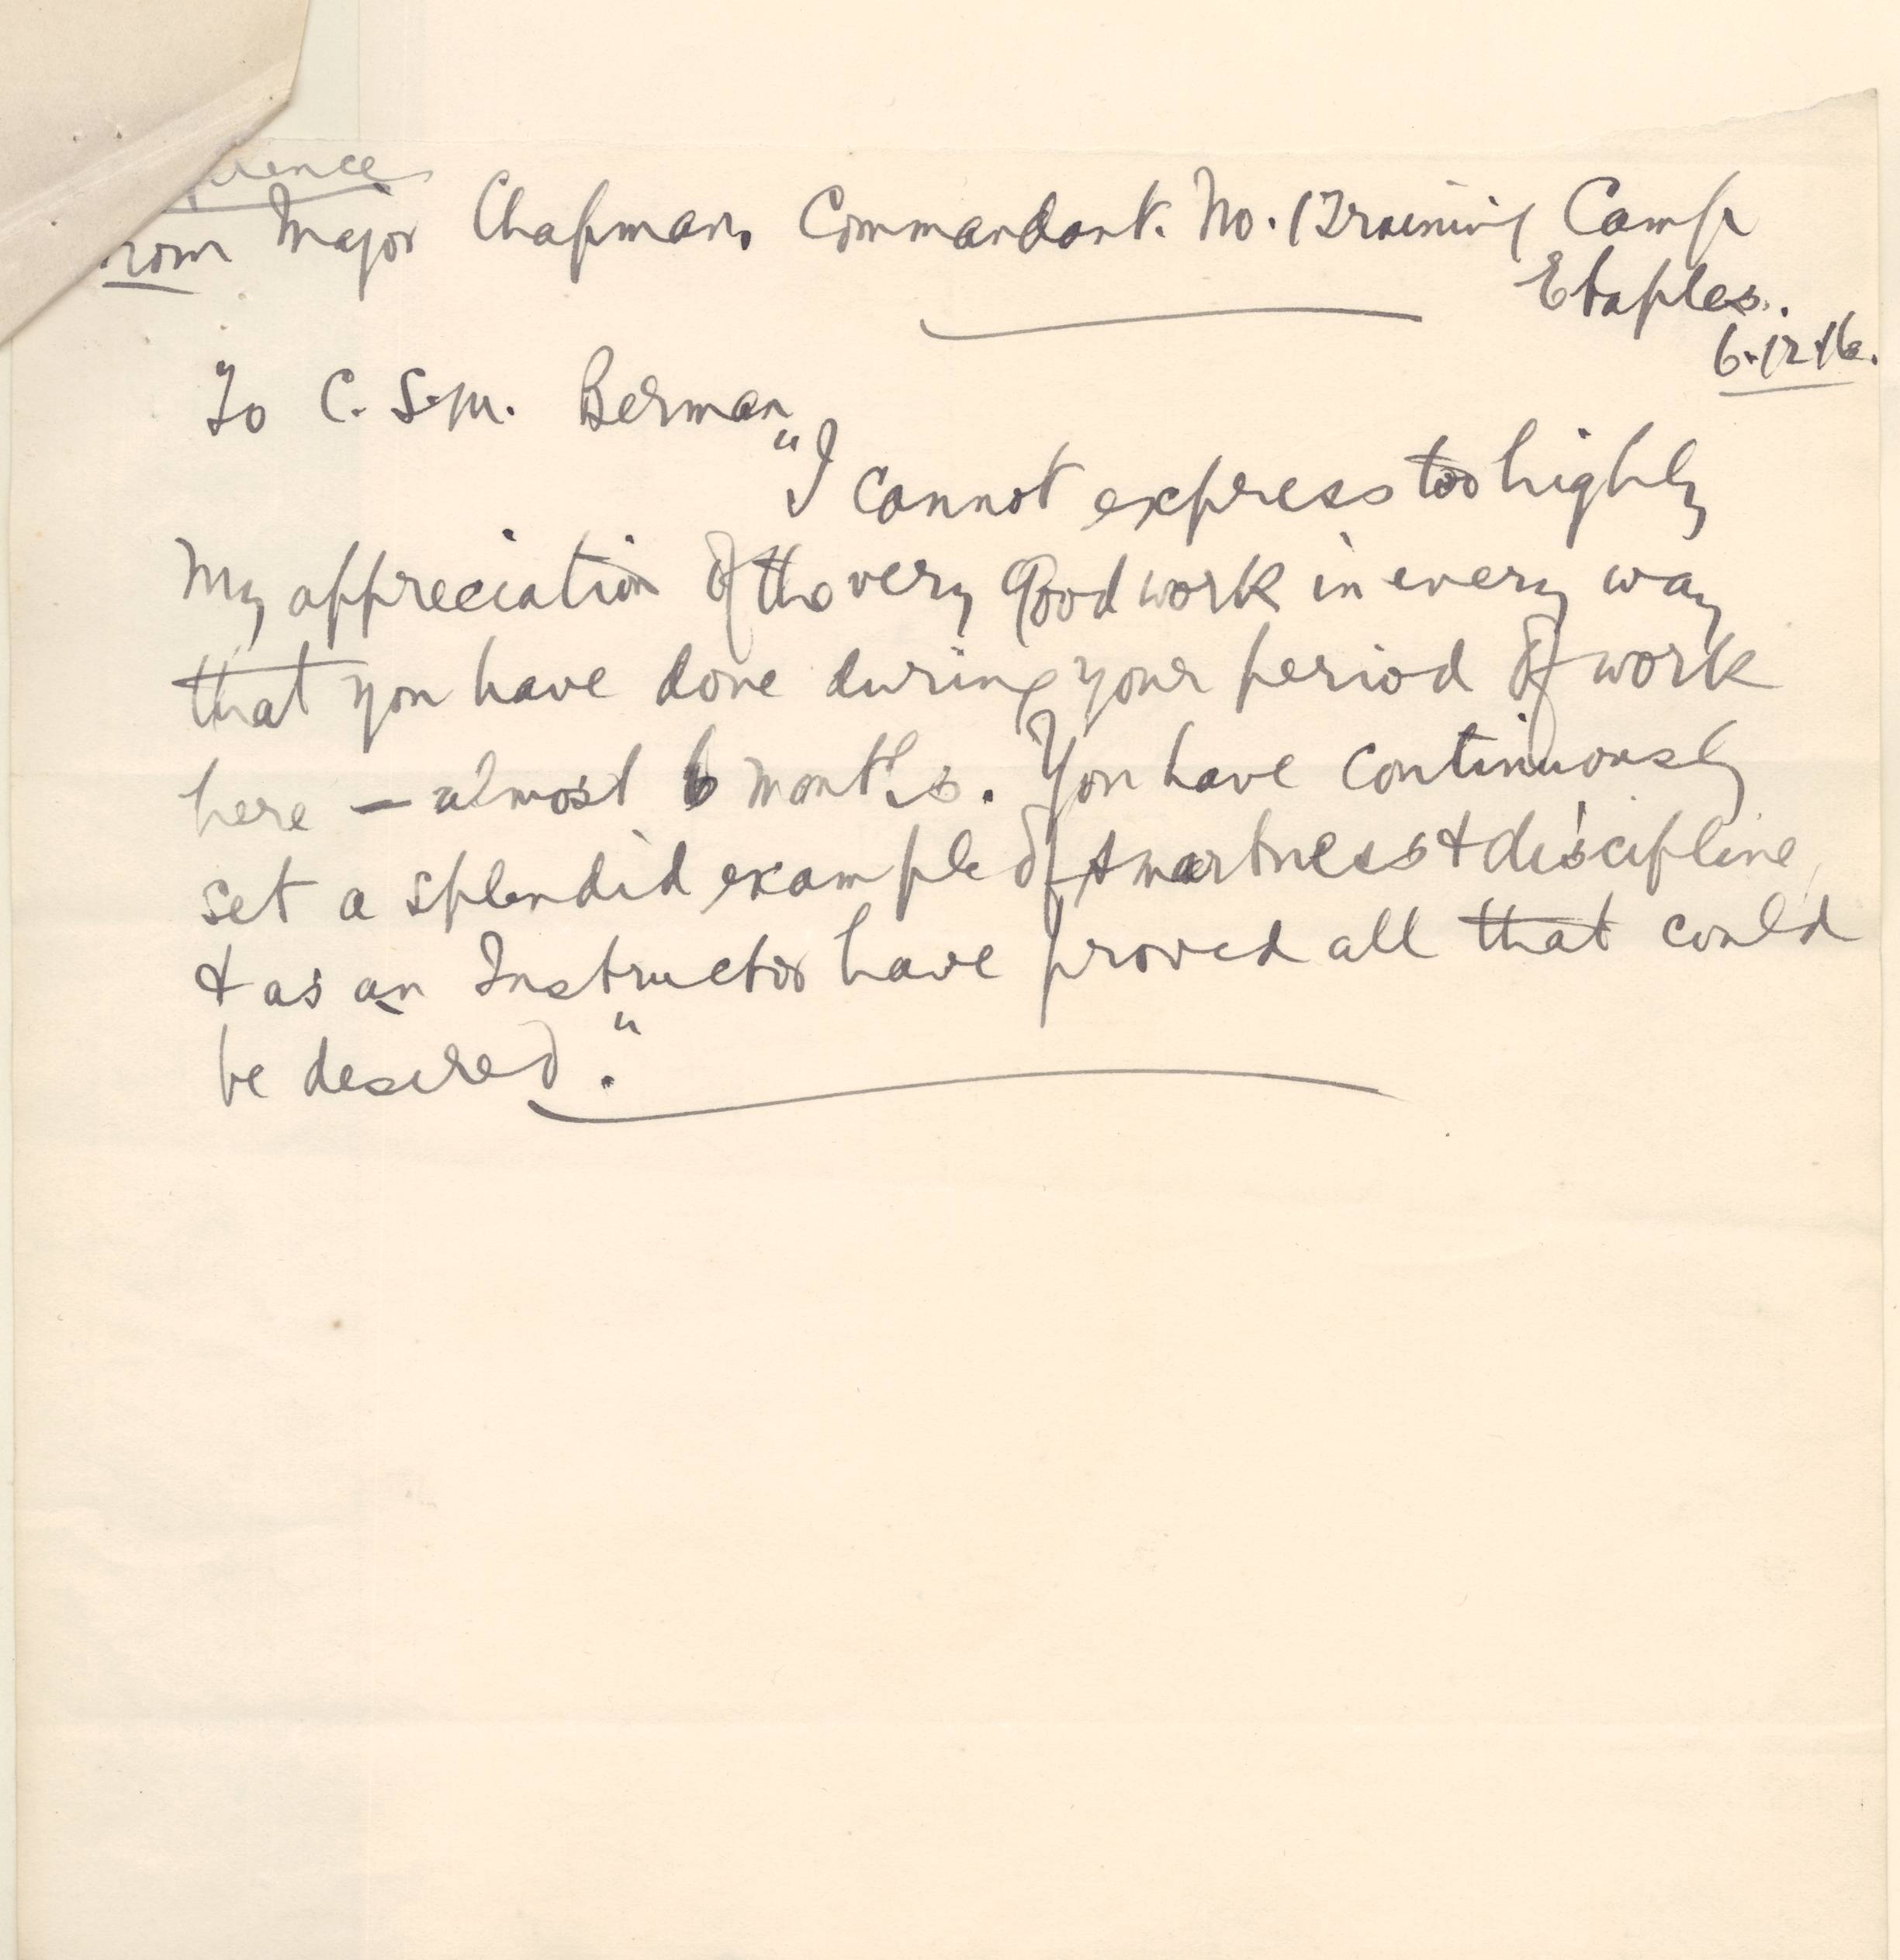 From Major Chapman, Commandant. No. 1 Training Camp
Etaples.
6.12.16.
To C. S.M. Berman
"I cannot express too highly
my appreciation of the very good work in every way
that you have done during your period of work
here — almost 6 months. You have continuously
set a splendid example of smartness & discipline,
& as an Instructor have proved all that could
be desired."